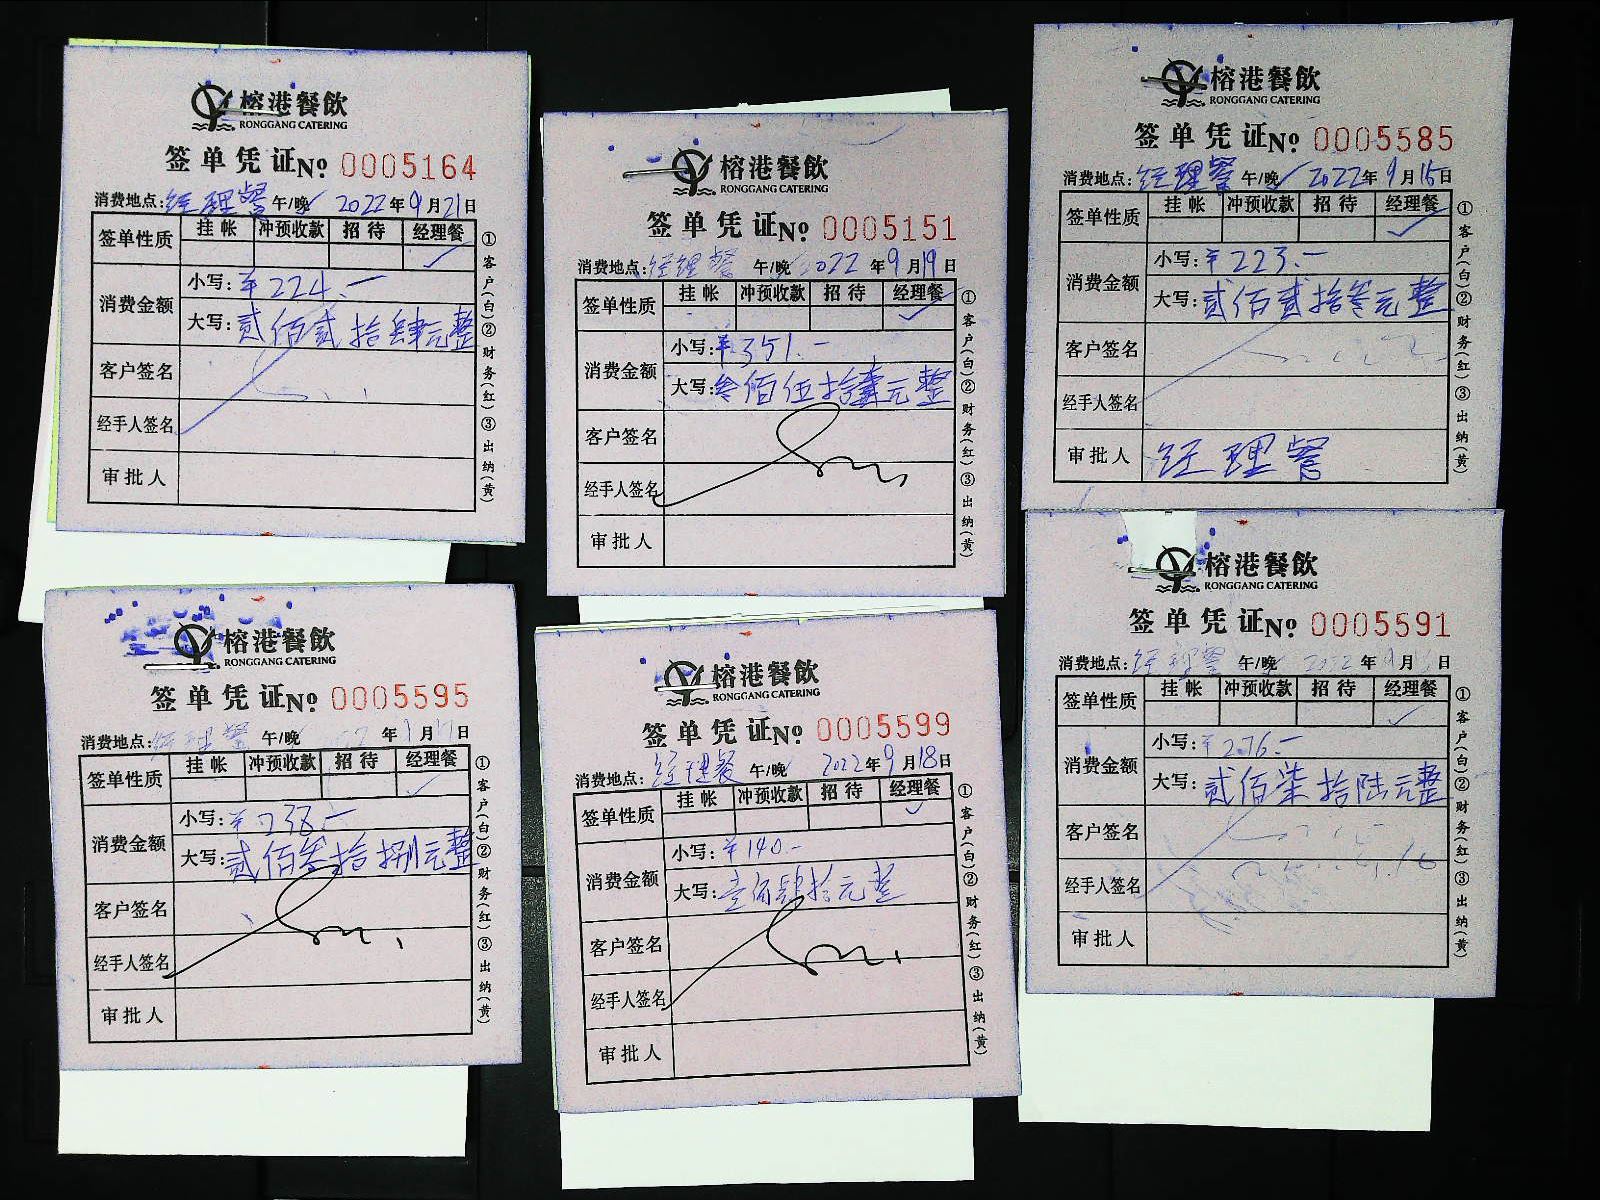 榕港餐飲
RONGGANG CATERING
签单凭证No 0005164
消费地点:经理餐 午/晚 2022年9月21日
签单性质 挂帐 冲预收款 招待 经理餐
✓
消费金额 小写:¥224.-
大写:贰佰贰拾肆元整
客户签名
经手人签名
审批人
①客户(白)②财务(红)③出纳(黄)
榕港餐飲
RONGGANG CATERING
签单凭证No 0005151
消费地点:经理餐 午/晚 2022年9月19日
签单性质 挂帐 冲预收款 招待 经理餐
✓
消费金额 小写:¥351.-
大写:叁佰伍拾壹元整
客户签名
经手人签名
审批人
①客户(白)②财务(红)③出纳(黄)
榕港餐飲
RONGGANG CATERING
签单凭证No 0005585
消费地点:经理餐 午/晚 2022年9月15日
签单性质 挂帐 冲预收款 招待 经理餐
✓
消费金额 小写:¥223.-
大写:贰佰贰拾叁元整
客户签名
经手人签名
审批人 经理餐
①客户(白)②财务(红)③出纳(黄)
榕港餐飲
RONGGANG CATERING
签单凭证No 0005595
消费地点:经理餐 午/晚 年 月 日
签单性质 挂帐 冲预收款 招待 经理餐
✓
消费金额 小写:¥238.-
大写:贰佰叁拾捌元整
客户签名
经手人签名
审批人
①客户(白)②财务(红)③出纳(黄)
榕港餐飲
RONGGANG CATERING
签单凭证No 0005599
消费地点:经理餐 午/晚 2022年9月18日
签单性质 挂帐 冲预收款 招待 经理餐
✓
消费金额 小写:¥140.-
大写:壹佰肆拾元整
客户签名
经手人签名
审批人
①客户(白)②财务(红)③出纳(黄)
榕港餐飲
RONGGANG CATERING
签单凭证No 0005591
消费地点:经理餐 午/晚 2022年9月 日
签单性质 挂帐 冲预收款 招待 经理餐
✓
消费金额 小写:¥276.-
大写:贰佰柒拾陆元整
客户签名
经手人签名
审批人
①客户(白)②财务(红)③出纳(黄)